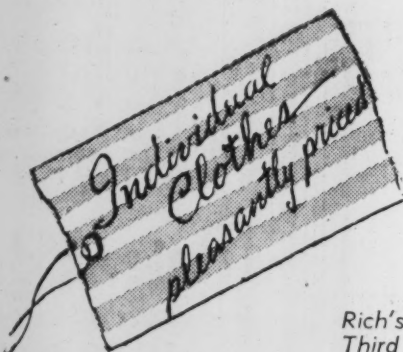 Individual
Clothes
pleasantly priced
Rich's
Third